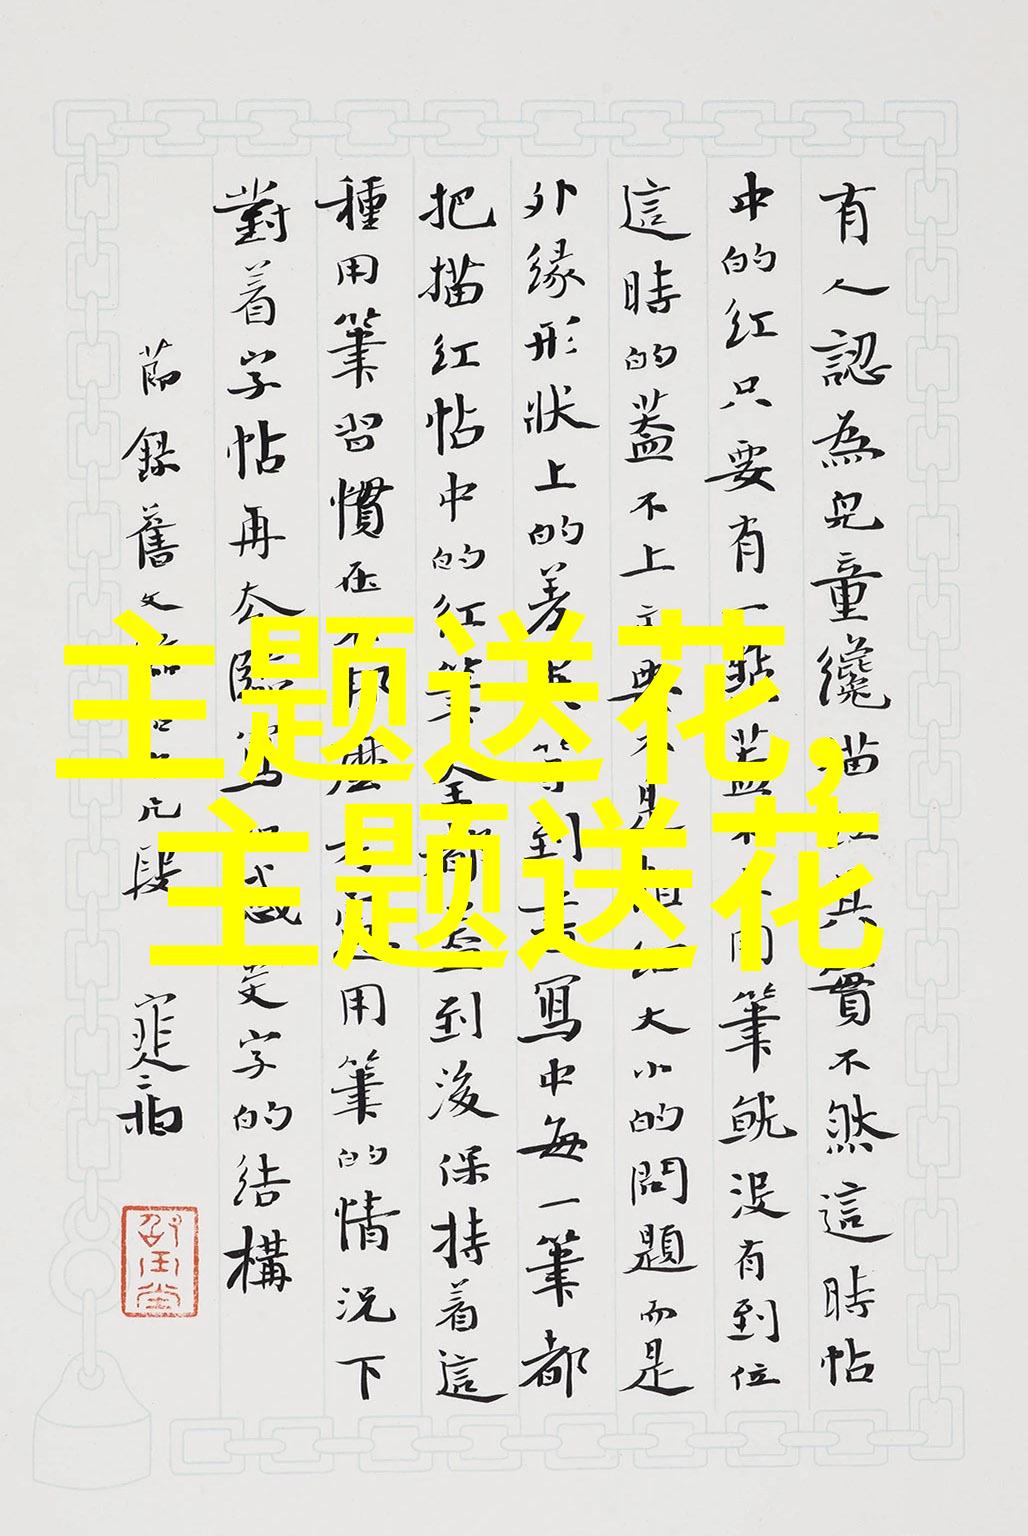 有人認為兒童纔描紅其實不然這時帖
中的紅只要有一點蓋不用筆就没有到位
這時的蓋不上不是大小的問題而是
外緣形狀上的等到書寫中每一筆都
把描紅帖中的紅筆全都蓋到後保持着這
種用筆習慣在麼用筆的情況下
對着字帖再去臨寫感受字的結構
節錄舊文片段
主题送花，
主题送花